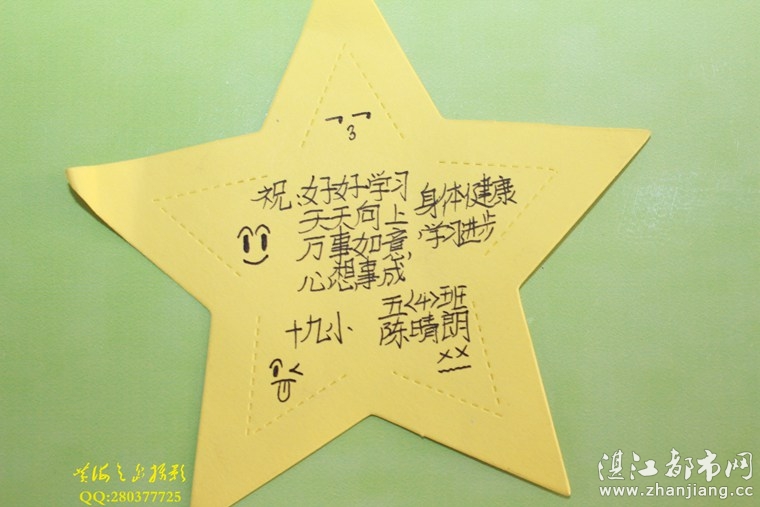 祝:好好学习
天天向上
万事如意,
心想事成
身体健康
学习进步
五<4>班
十九小 陈晴朗
QQ:280377725
湛江都市网
www.zhanjiang.cc